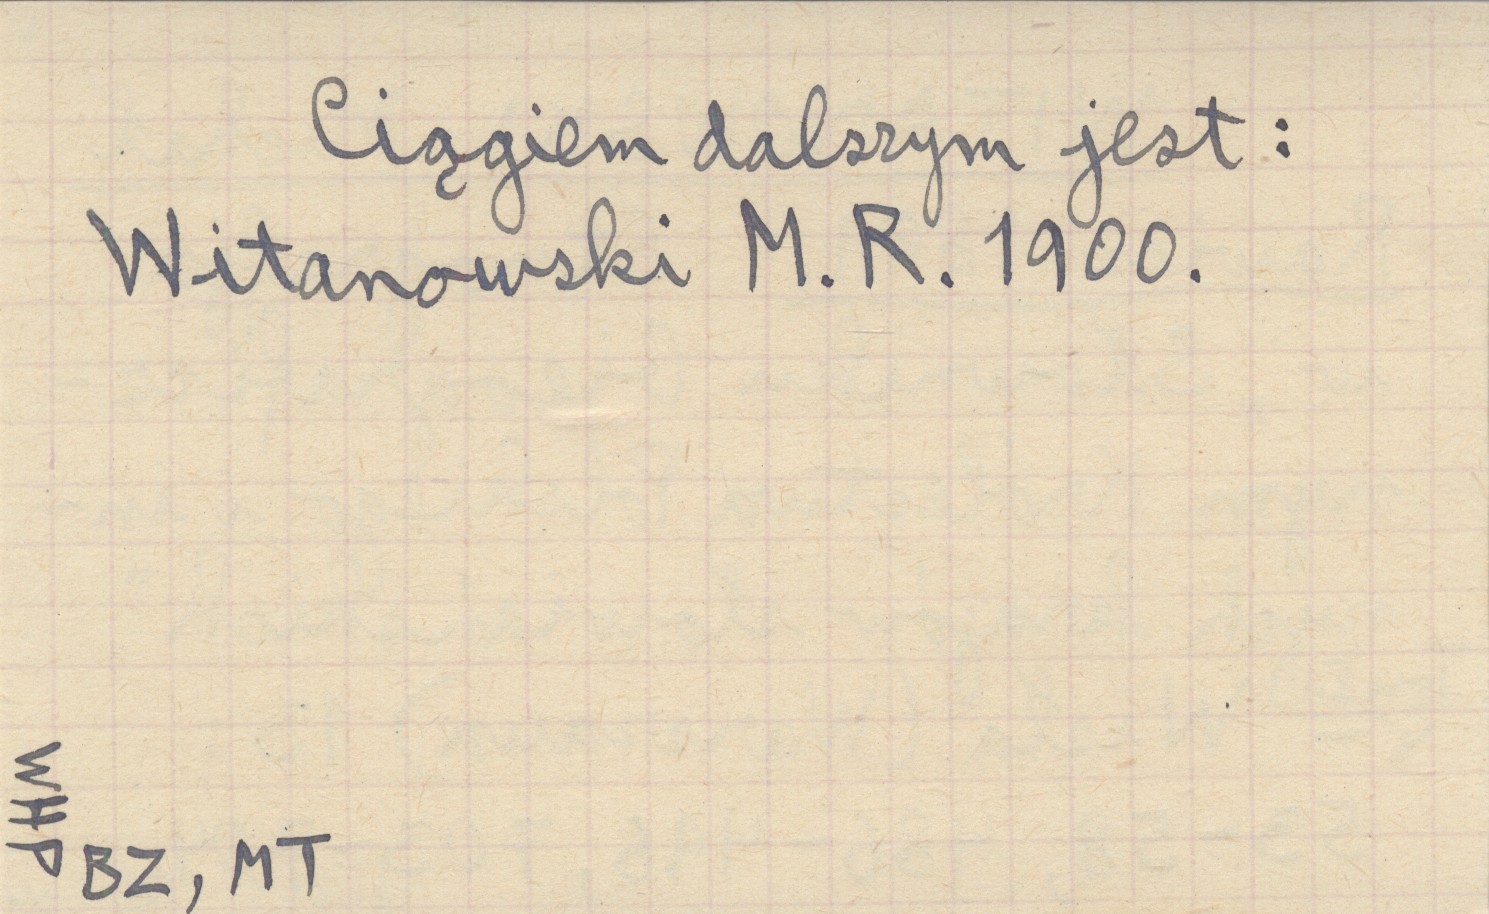 Ciągiem dalszym jest:
Witanowski M. R. 1900.
WHP
BZ, MT